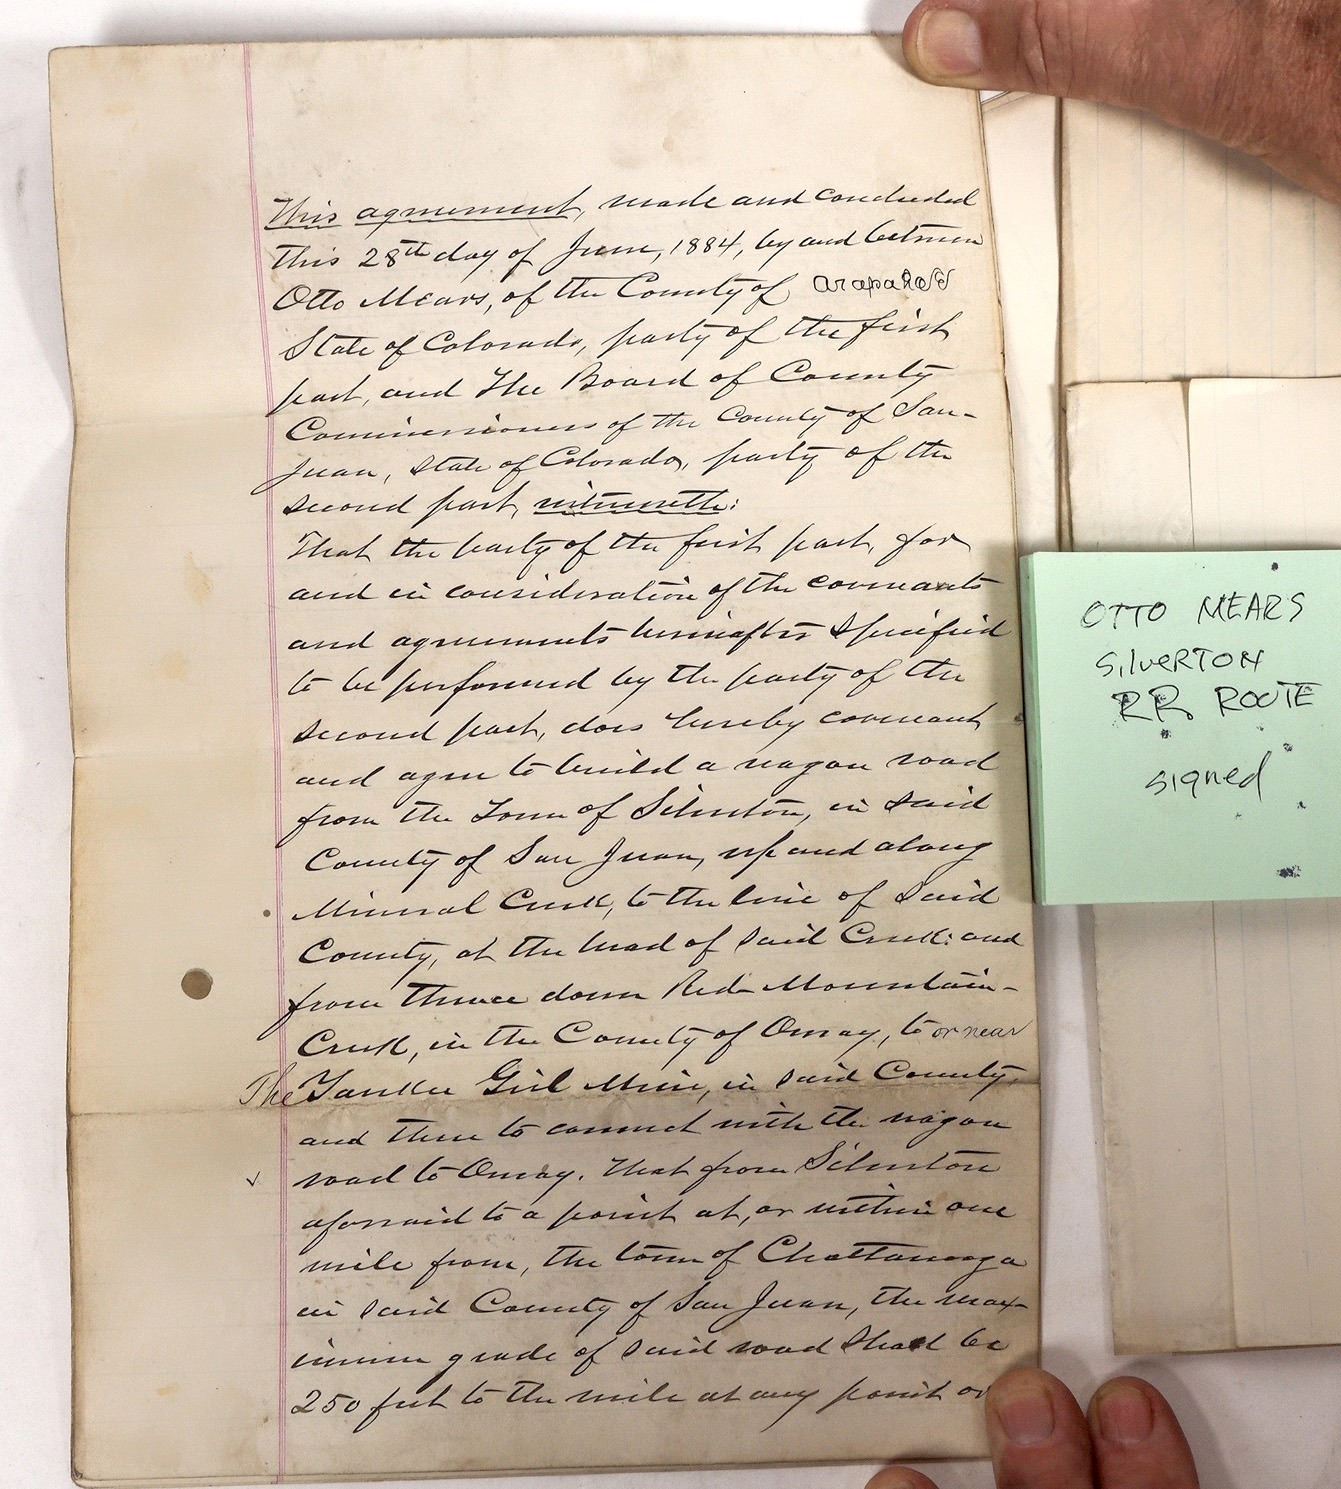 This agreement, made and concluded
this 28th day of June, 1884, by and between
Otto Mears, of the County of arapahoe
State of Colorado, party of the first
part, and The Board of County
Commissioners of the County of San-
Juan, State of Colorado, party of the
second part, witnesseth:
That the party of the first part, for
and in consideration of the covenants
and agreements hereinafter specified
to be performed by the party of the
second part, does hereby covenant
and agree to build a wagon road
from the Town of Silverton, in said
County of San Juan, up and along
Mineral Creek, to the line of said
County, at the head of said Creek: and
from thence down Red Mountain-
Creek, in the County of Ouray, to or near
The Yankee Girl Mine, in said County,
and there to connect with the wagon
road to Ouray. That from Silverton
aforesaid to a point at, or within one
mile from, the town of Chattanooga
in said County of San Juan, the max-
imum grade of said road shall be
250 feet to the mile at any point or
OTTO MEARS
SILVERTON
RR ROUTE
signed